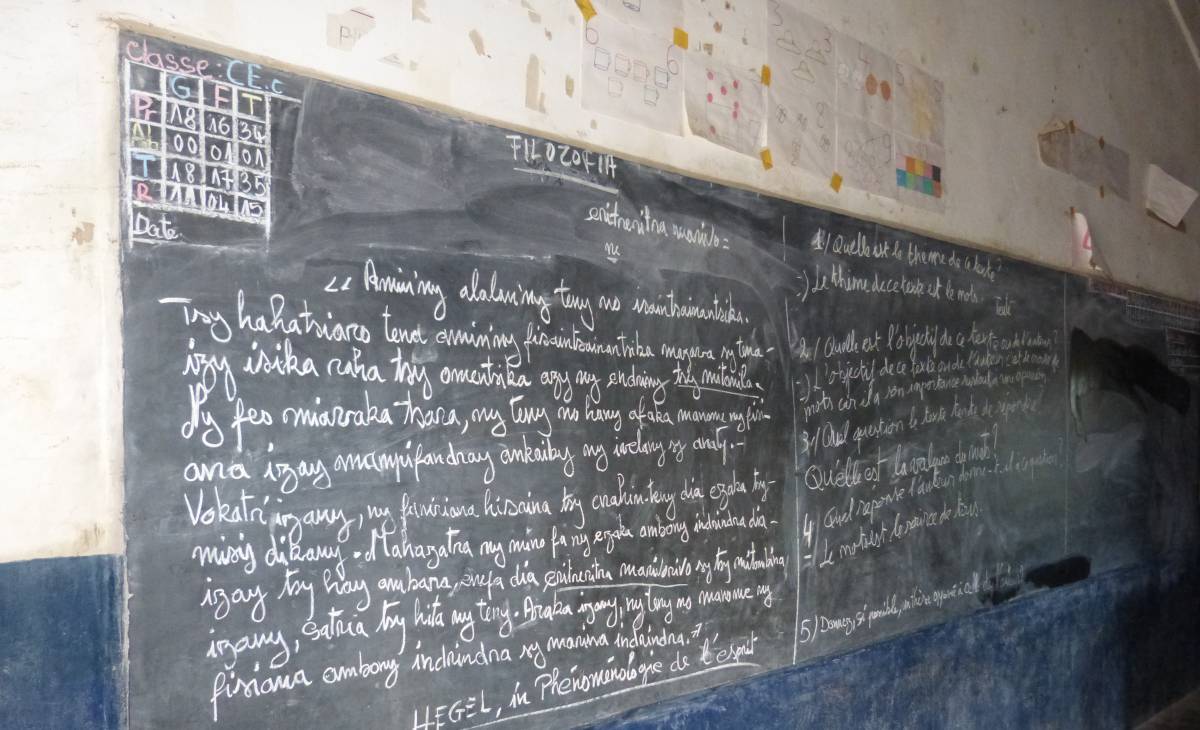 Classe: CE.c
G F T
Pr 18 16 34
Ab 00 01 01
T 18 17 35
R 11 04 15
Date:
FILOZOFIA
eritreritra manivo =
ne
"Amin'ny alalan'ny teny no isaintsainantsika.
Tsy hahatsiaro tena amin'ny fisaintsainantsika mazava sy tena-
izy isika raha tsy omentsika azy ny endriny tsy mitovila.
Ny feo miavaka tsara, ny teny no hany afaka manome ny fisi-
ana izay mampifandray ankaiby ny ivelany sy anaty.-
Vokatr'izany, ny finiriana hisaina tsy enahin-teny dia ezaka tsy-
misy dikany. Mahazatra ny mino fa ny ezaka ambony indrindra dia-
izay tsy hay ambara, anefa dia eritreritra manivonivo sy tsy mitombina
izany, satria tsy hita ny teny. Araka izany, ny teny no manome ny
fisiana ambony indrindra sy marina indrindra."
HEGEL, in Phénoménologie de l'esprit
1°/ Quelle est le thème de ce texte?
-) Le thème de ce texte est le mots.
Texte
2°/ Quelle est l'objectif de ce texte ou de l'auteur?
-) L'objectif de ce texte ou de l'auteur c'est le
mots car il a son importance
3°/ Quel question le texte tende de répondre?
Quelle est la valeur du mots?
4/ Quel reponse l'auteur donne-t-il à ce question?
- Le mots est le source de
5) Donnez, si possible, un thèse opposé à